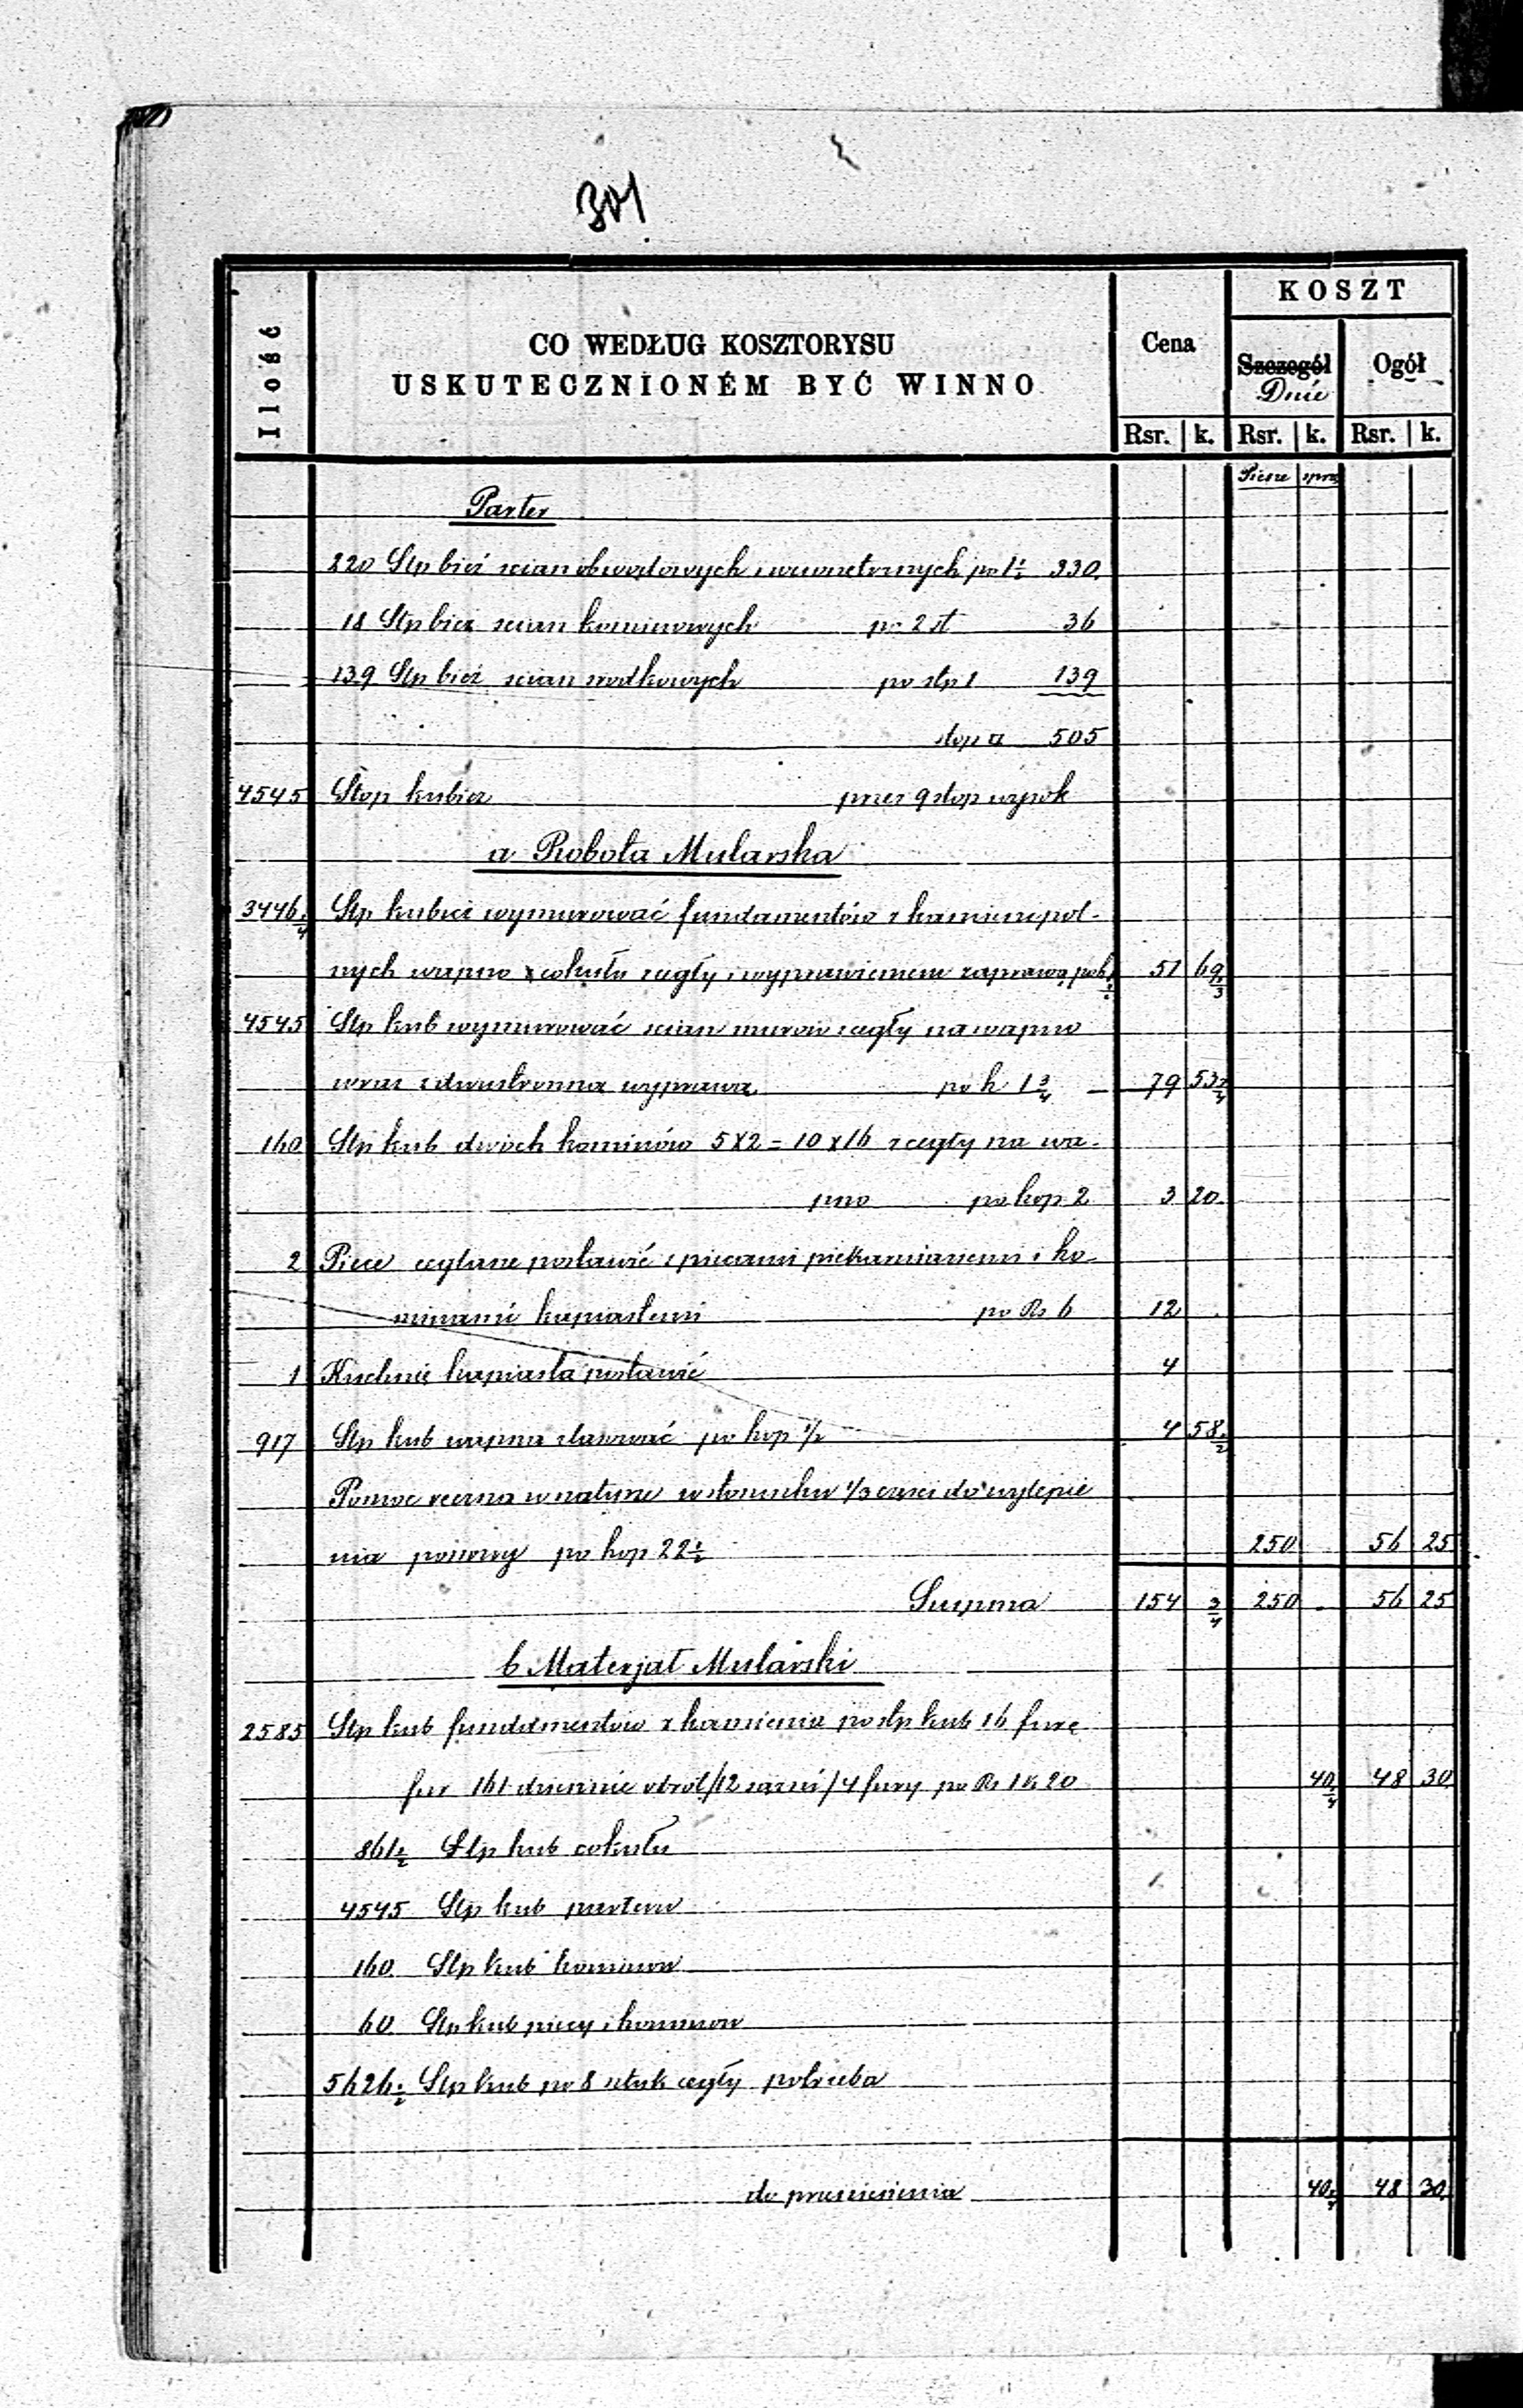 301
Ilość
CO WEDŁUG KOSZTORYSU
USKUTECZNIONÉM BYĆ WINNO
Cena
KOSZT
Szczegół
Dnie
Ogół
Rsr. k. Rsr. k. Rsr. k.
Piesze sprz
Parter
220 Stp bież scian obwodowych i wewnetrznych po 1½ 330.
18 Stp bież scian kominowych po 2 st 36
139 Stp bież scian srodkowych po stp 1 139
stop a 505
4545 Stop kubicz przez 9 stop wysok
a Robota Mularska
3446 Stp kubicz wymurować fundamentów z kamieni pol-
nych wapno z cokułu cegły i wyprawieniem zaprawą po k 51 69
4545 Stp kub wymurować scian murów z cegły na wapno
wraz z dwustronna wyprawa po k 1¾ 79 53
160 Stp kub dwóch kominów 5x2=10x16 z cegły na wa-
pno po kop 2 3 20
2 Piece ceglane postawić z piecami piekarnianemi i ko-
minami kapiastemi po Rs 6 12
1 Kuchnię kapiasta postawić 4
917 Stp kub wapna zlasować po kop ½ 4 58½
Pomoc reczna w naturze w stosunku 1/3 czesci do wylepie
nia podłowy po kop 22½ 250 56 25
Summa 154 ¾ 250 56 25
b Materjał Mularski
2585 Stp kub fundamentów z kamienia po stp kub 16 furę
fur 161 dziennie obrót /12 / 4 fury po Rs 1 k 20 40¼ 48 30
861½ Stp kub cokułu
4545 Stp kub parteru
160 Stp kub kominow
60 Stp kub piecy i kominow
5626½ Stp kub po 8 sztuk cegły potrzeba
do przeniesienia 40¼ 48 30